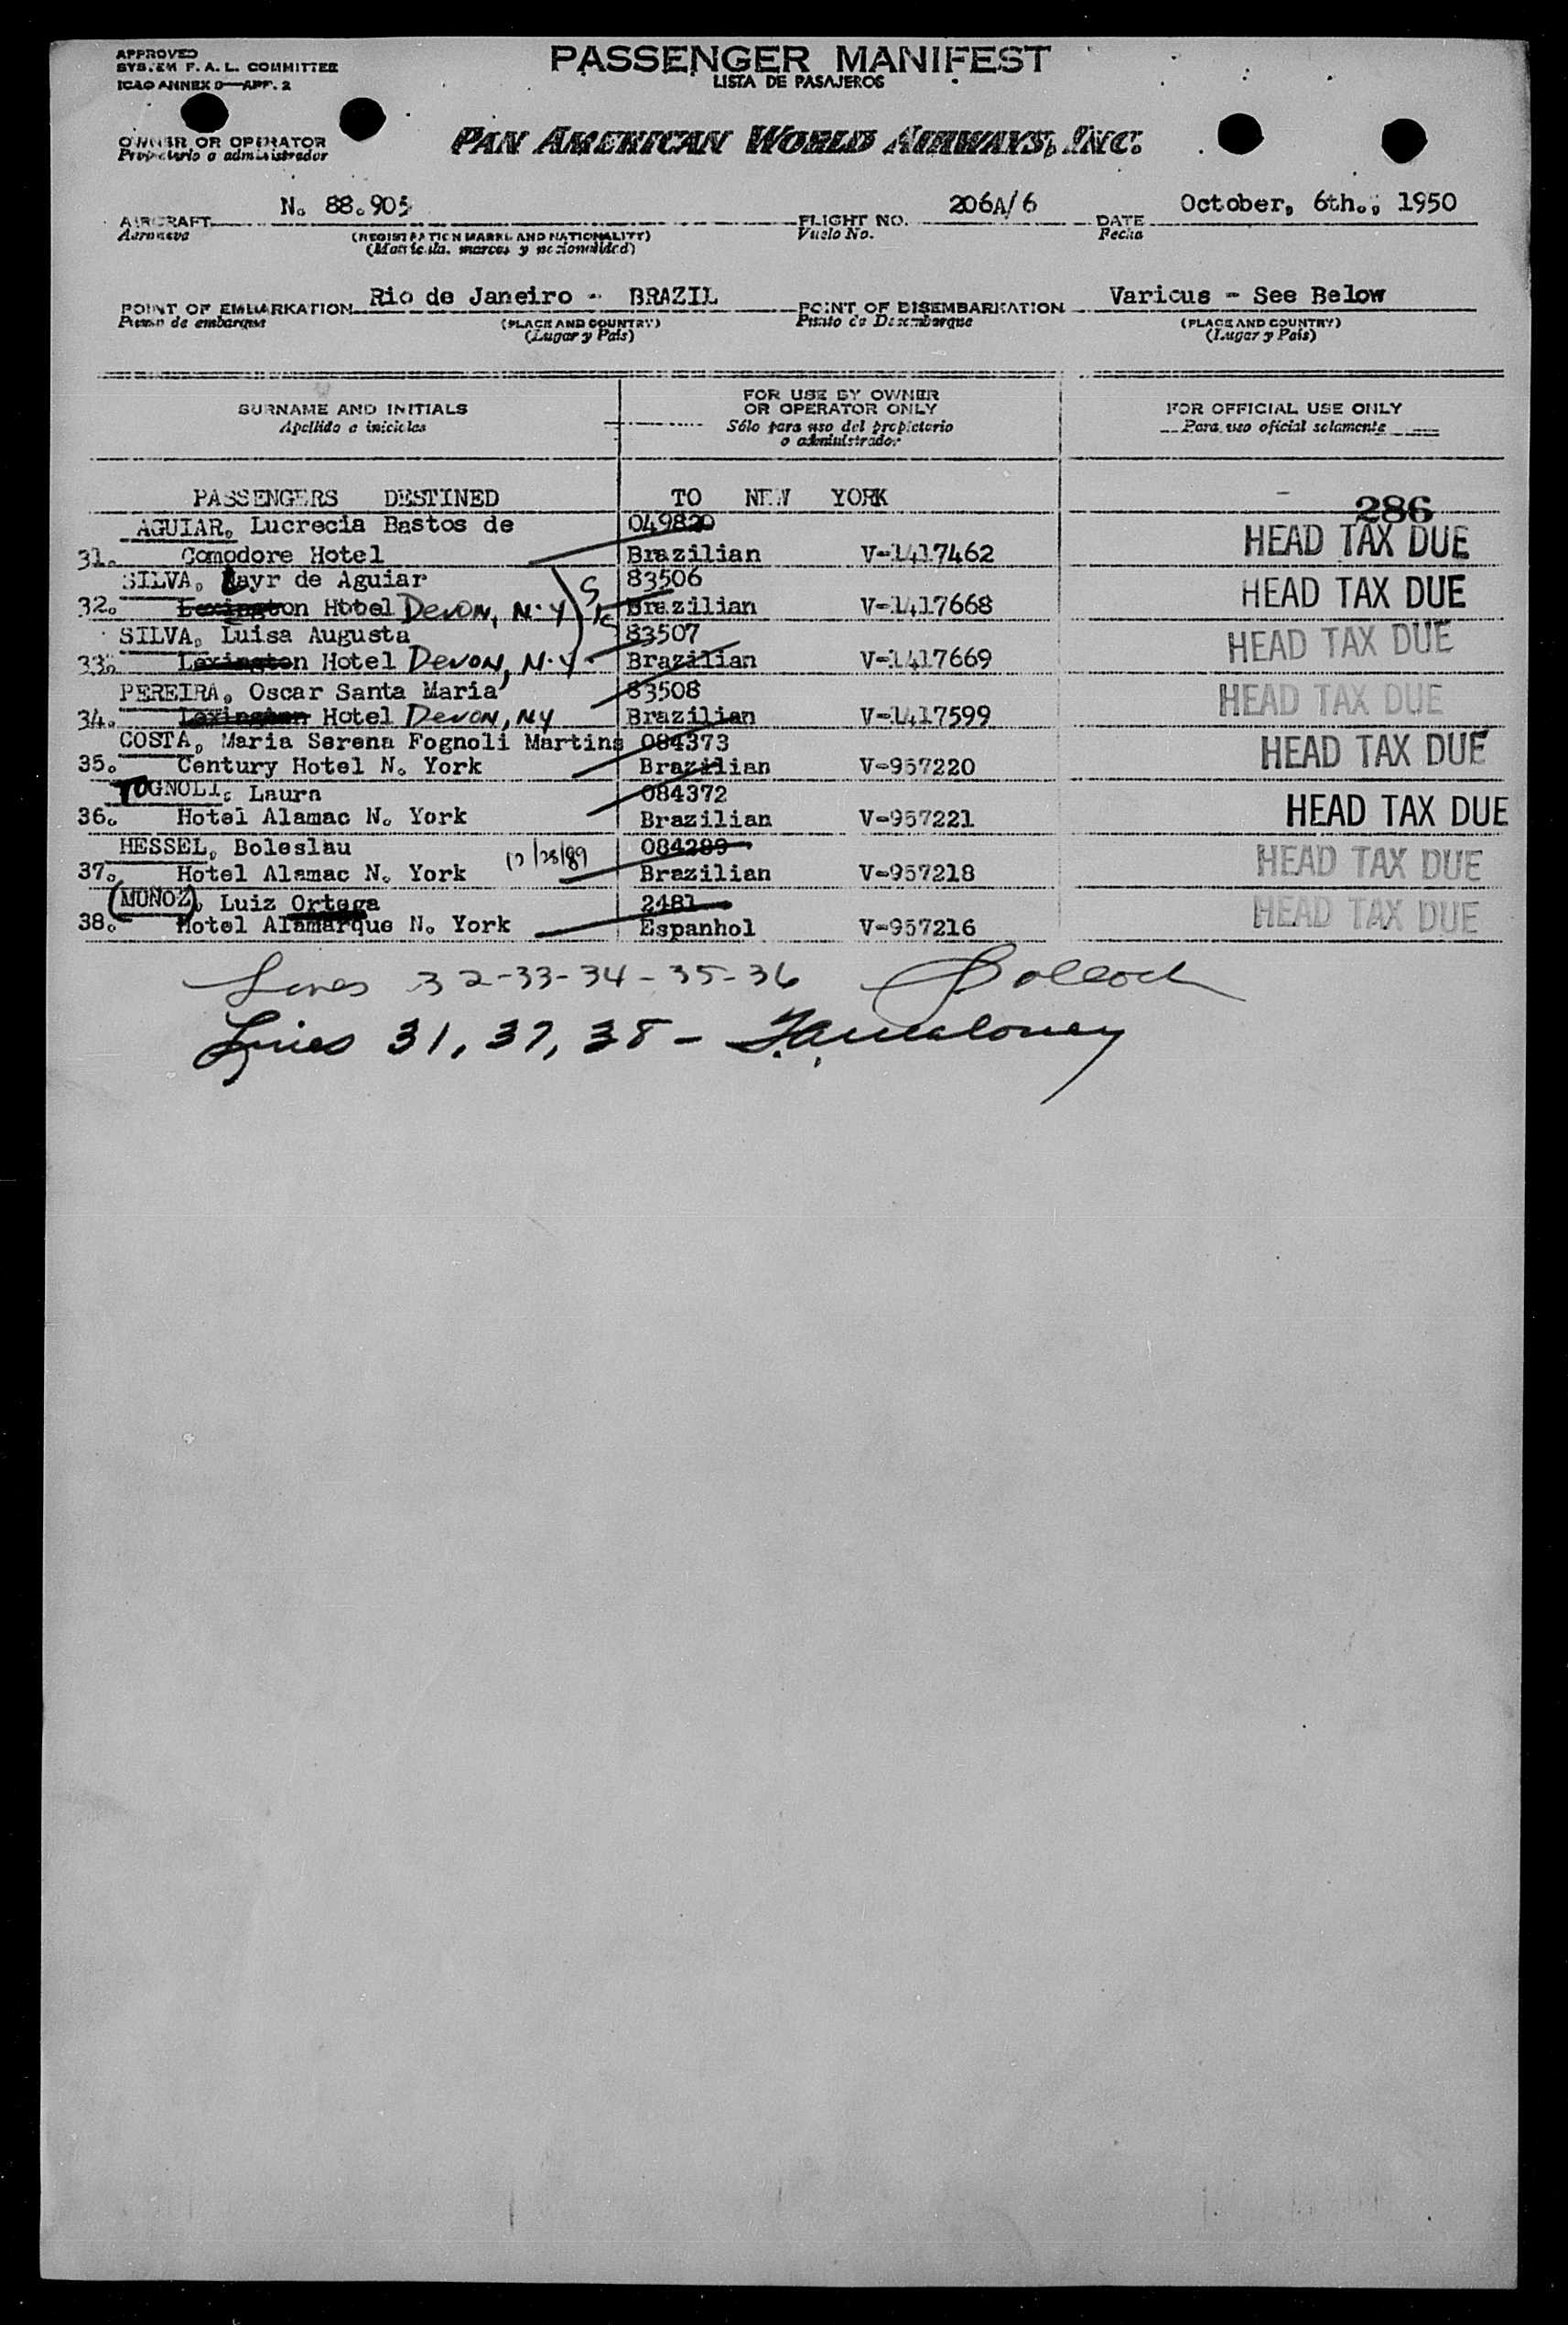 APPROVED
SYSTEM F. A. L. COMMITTEE
ICAO ANNEX 9—APP. 2
PASSENGER MANIFEST
LISTA DE PASAJEROS
OWNER OR OPERATOR
Propietario o administrador
PAN AMERICAN WORLD AIRWAYS, INC.
AIRCRAFT N. 88.905 FLIGHT NO. 206A/6 DATE October, 6th., 1950
Aeronave (REGISTRATION MARKS AND NATIONALITY) Vuelo No. Fecha
(Matricula, marcas y nacionalidad)
POINT OF EMBARKATION Rio de Janeiro - BRAZIL POINT OF DISEMBARKATION Various - See Below
Puerto de embarque (PLACE AND COUNTRY) Punto de Desembarque (PLACE AND COUNTRY)
(Lugar y País) (Lugar y País)
SURNAME AND INITIALS
Apellido e iniciales
FOR USE BY OWNER
OR OPERATOR ONLY
Sólo para uso del propietario
o administrador
FOR OFFICIAL USE ONLY
Para uso oficial solamente
PASSENGERS DESTINED TO NEW YORK
286
AGUIAR, Lucrecia Bastos de 049820 HEAD TAX DUE
31. Comodore Hotel Brazilian V-1417462
SILVA, Jayr de Aguiar 83506 HEAD TAX DUE
32. Lexington Hotel DEVON, N.Y Brazilian V-1417668
SILVA, Luisa Augusta 83507 HEAD TAX DUE
33. Lexington Hotel DEVON, N.Y. Brazilian V-1417669
PEREIRA, Oscar Santa Maria 83508 HEAD TAX DUE
34. Lexington Hotel DEVON, NY Brazilian V-1417599
COSTA, Maria Serena Fognoli Martins 084373 HEAD TAX DUE
35. Century Hotel N. York Brazilian V-957220
TOGNOLI, Laura 084372
36. Hotel Alamac N. York Brazilian V-957221 HEAD TAX DUE
HESSEL, Boleslau 12/28/89 084289 HEAD TAX DUE
37. Hotel Alamac N. York Brazilian V-957218
(MUNOZ), Luiz Ortega 2481 HEAD TAX DUE
38. Hotel Alamarque N. York Espanhol V-957216
Lines 32-33-34-35-36
Lines 31, 37, 38 -